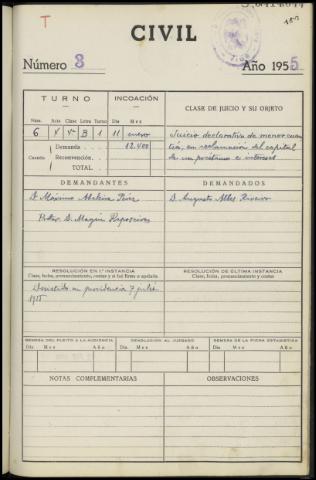 T
CIVIL
Número 3 Año 1955
TURNO INCOACIÓN CLASE DE JUICIO Y SU OBJETO
Núm. Acta Clase Letra Turno Día Mes
6 B 1 11 enero Juicio declarativo de menor cuan
Cuantía Demanda 12.400 tía, en reclamación del capital
Reconvención. de un préstamo e intereses
TOTAL.
DEMANDANTES DEMANDADOS
D. Máximo Pérez D. Augusto Riveiro
D. Magín
RESOLUCIÓN EN 1.ª INSTANCIA RESOLUCIÓN DE ÚLTIMA INSTANCIA
Clase, fecha, pronunciamiento, costas y si fué firme o apelada Clase, fecha, pronunciamiento y costas
Desistido en providencia 7 julio
1955
REMESA DEL PLEITO A LA AUDIENCIA DEVOLUCIÓN AL JUZGADO REMESA DE LA FICHA ESTADÍSTICA
Día Mes Año Día Mes Año Día Mes Año
NOTAS COMPLEMENTARIAS OBSERVACIONES